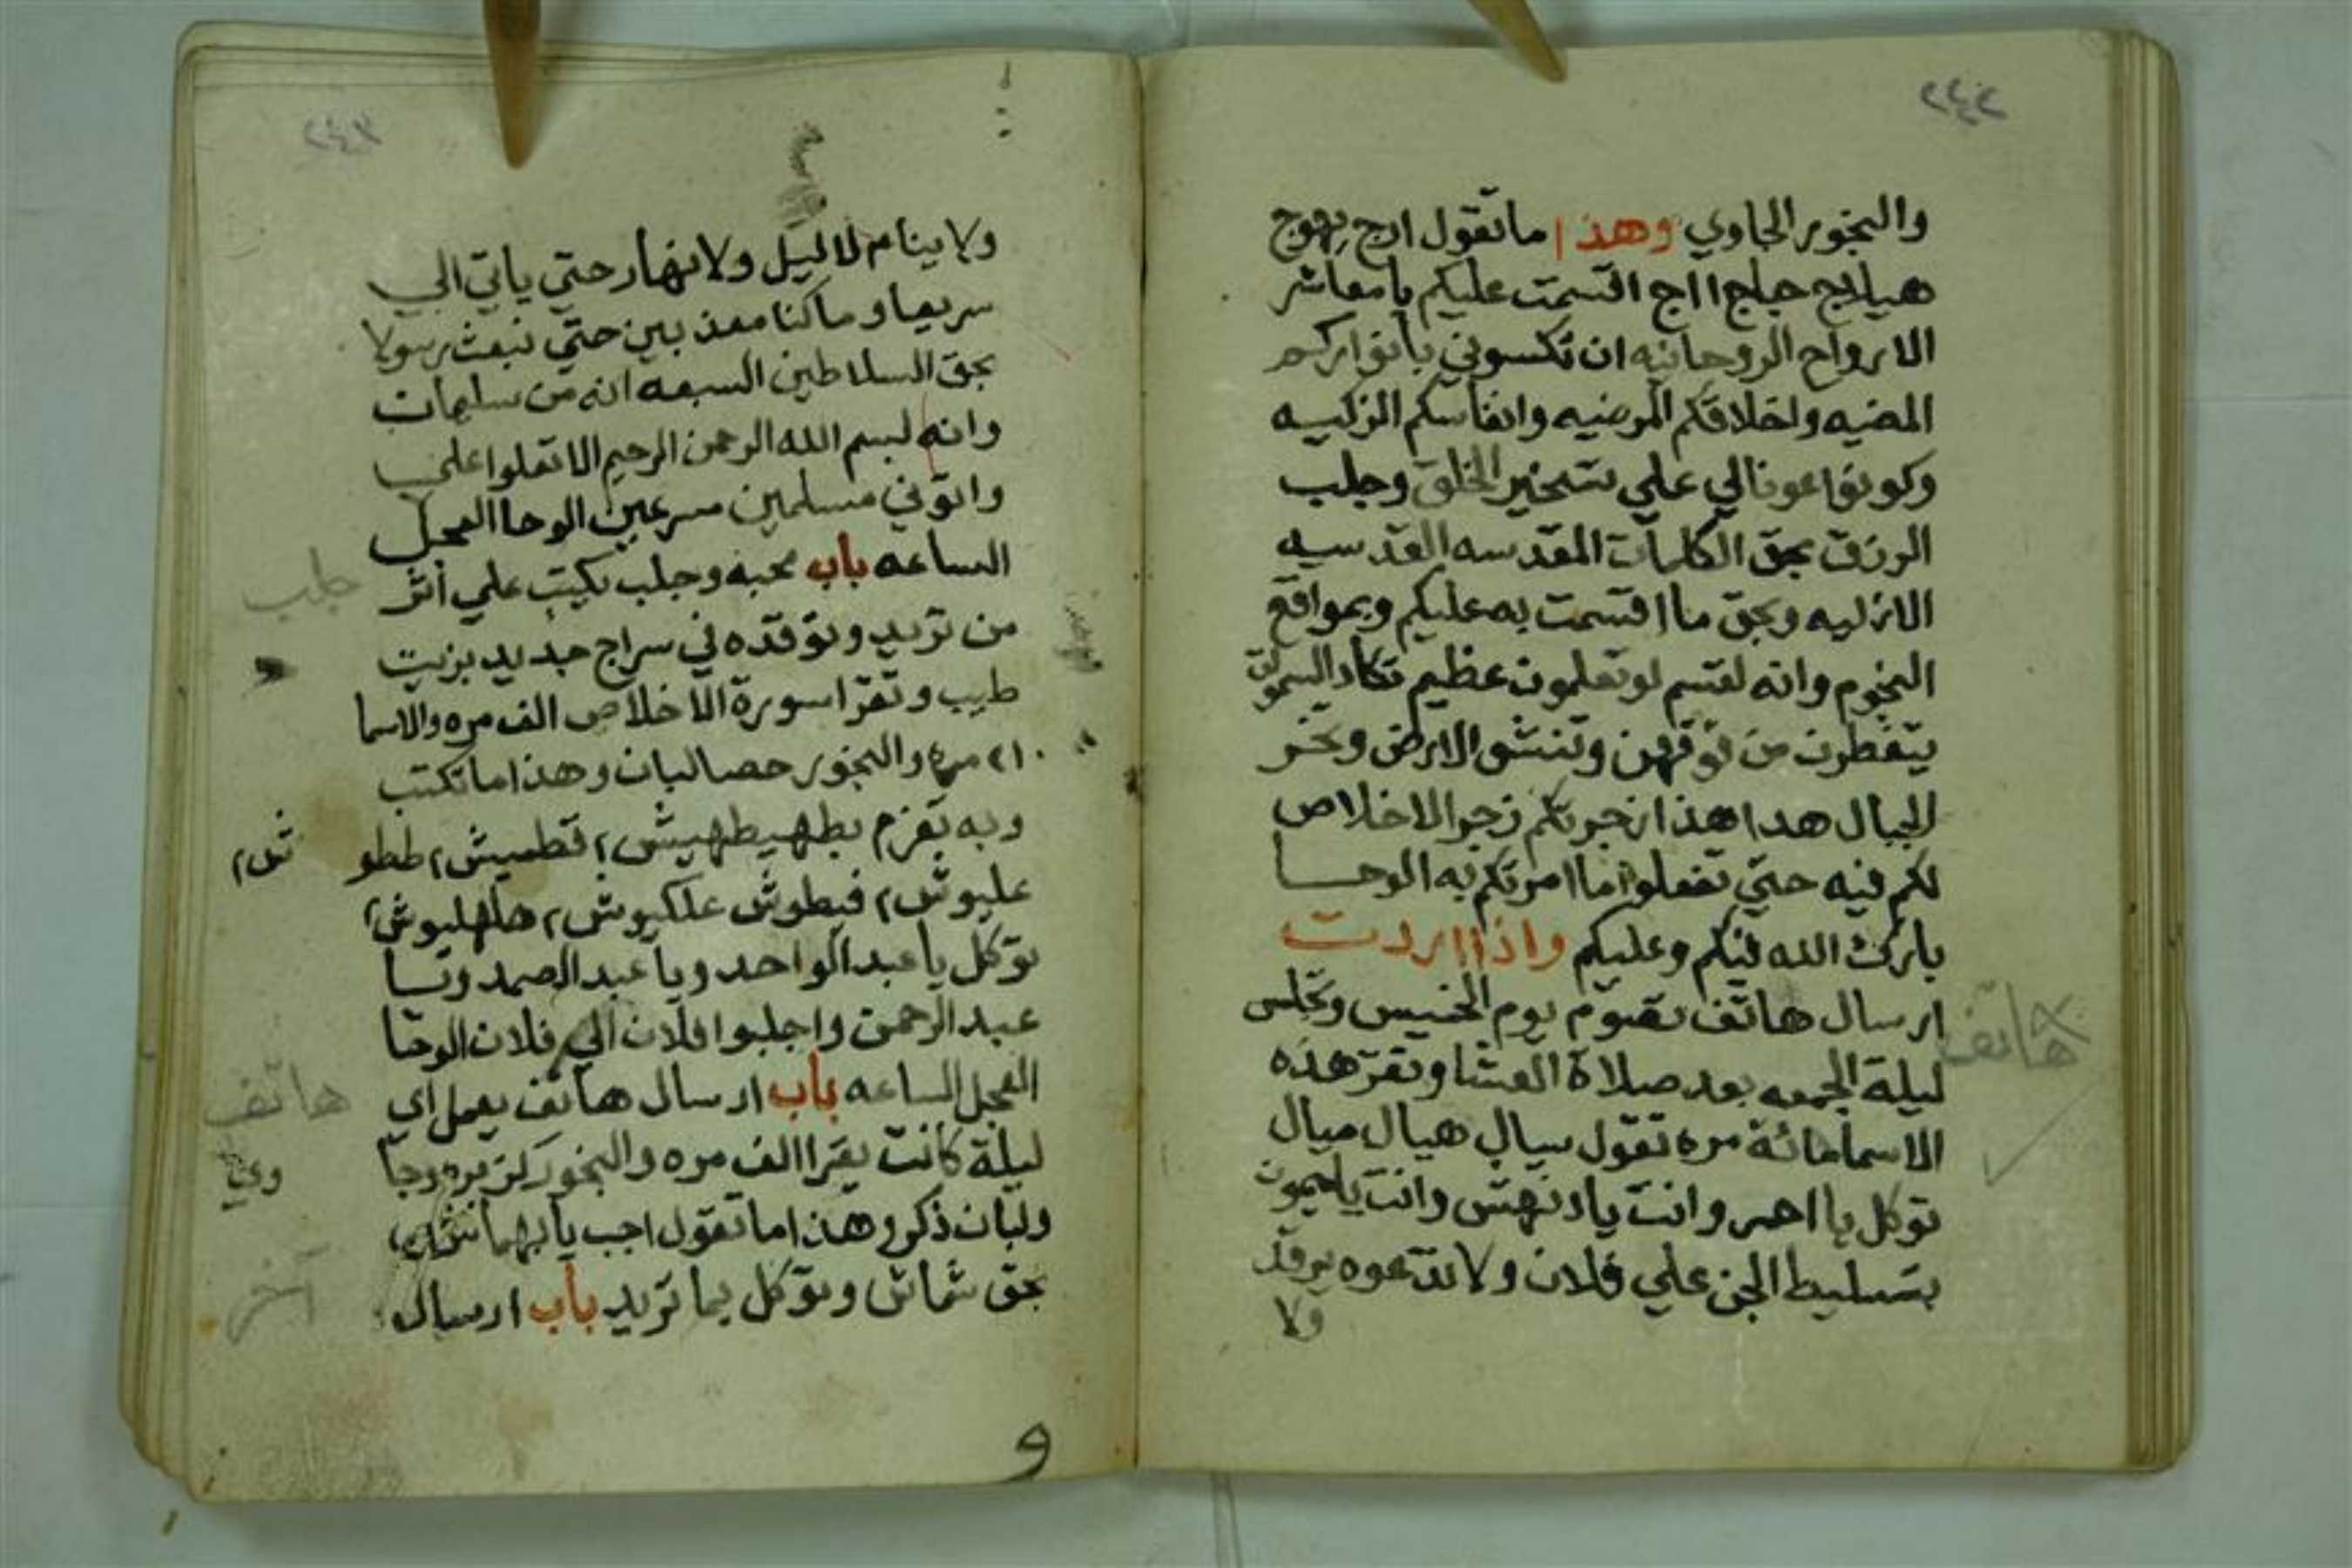 ٢٤٢
والبخور الجاوي وهذا ما تقول ارج يهوج
هيلاج جلج ااج اقسمت عليكم يا معاشر
الارواح الروحانيه ان تكسوني بانواركم
المضيه واخلاقكم المرضيه وانفاسكم الزكيه
وكونوا عونا لي علي تسخير الخلق وجلب
الرزق بحق الكلمات المقدسه القدسيه
الازليه وبحق ما اقسمت به عليكم وبمواقع
النجوم وانه لقسم لو تعلمون عظيم تكاد السموات
يتفطرن من فوقهن وتنشق الارض وتخر
الجبال هدا هذا زجرتكم زجرا لاخلاص
لكم فيه حتي تفعلوا ما امرتكم به الوحا
بارك الله فيكم وعليكم واذا اردت
ارسال هاتف تصوم يوم الخميس وتجلس
هاتف
ليلة الجمعه بعد صلاة العشا وتقر هذه
الاسما مائة مره تقول سيال هيال ميال
توكل يا احمر وانت يا دنهش وانت يا ميمون
بتسليط الجن علي فلان ولا تدعوه يرقد
ولا
٢٤٣
ولا ينام لا ليل ولا نهار حتي ياتي الي
سريعا وما كنا معذبين حتي نبعث رسولا
بحق السلاطين السبعه انه من سليمان
وانه لبسم الله الرحمن الرحيم الا تعلوا علي
واتوني مسلمين مسرعين الوحا العجل
الساعه باب محبه وجلب تكتب علي اثر
جلب
من تريد وتوقده في سراج جديد بزيت
طيب وتقرا سورة الاخلاص الف مره والاسما
مره والبخور حصالبان وهذا ما تكتب
وبه تعزم بطهيطهيش ٢ قطميش ٢ طط
عليوش ٢ فيطوش علكيوش ٢ هلهليوش ٢
توكل يا عبد الواحد ويا عبد الصمد ويا
عبد الرحمن واجلبوا فلان الي فلان الوحا
العجل الساعه باب ارسال هاتف يعمل اي
هاتف
ليلة كانت يقرا الف مره والبخور كزبره وجا
وي
ولبان ذكر وهذا ما تقول اجب يا
بحق شماش وتوكل بما تريد باب ارسال
آخر
و